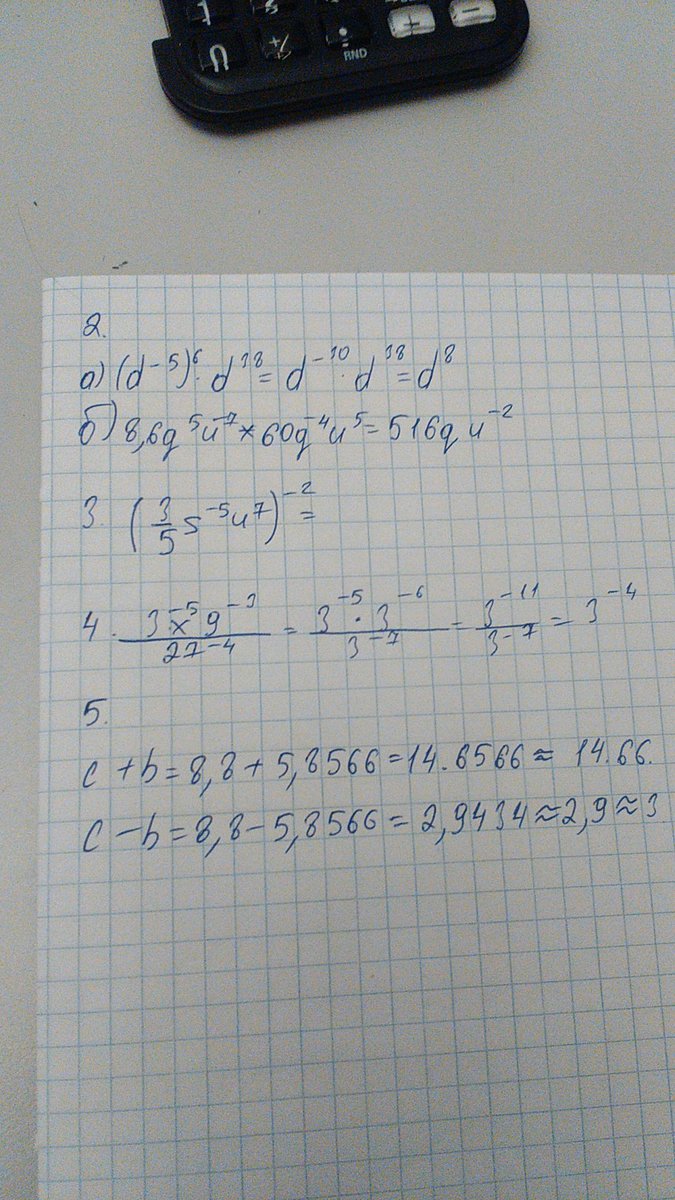 1 2 + −
0 +/- • RND
2.
а) (d⁻⁵)⁶ · d¹⁸ = d⁻¹⁰ · d¹⁸ = d⁸
б) 8,6g⁵u⁻⁷ × 60g⁻⁴u⁵ = 516g u⁻²
3. (3/5 s⁻⁵u⁷)⁻² =
4. (3⁻⁵ × 9⁻³)/27⁻⁴ = (3⁻⁵ · 3⁻⁶)/3⁻⁷ = 3⁻¹¹/3⁻⁷ = 3⁻⁴
5.
c + b = 8,8 + 5,8566 = 14.6566 ≈ 14.66.
c − b = 8,8 − 5,8566 = 2,9434 ≈ 2,9 ≈ 3